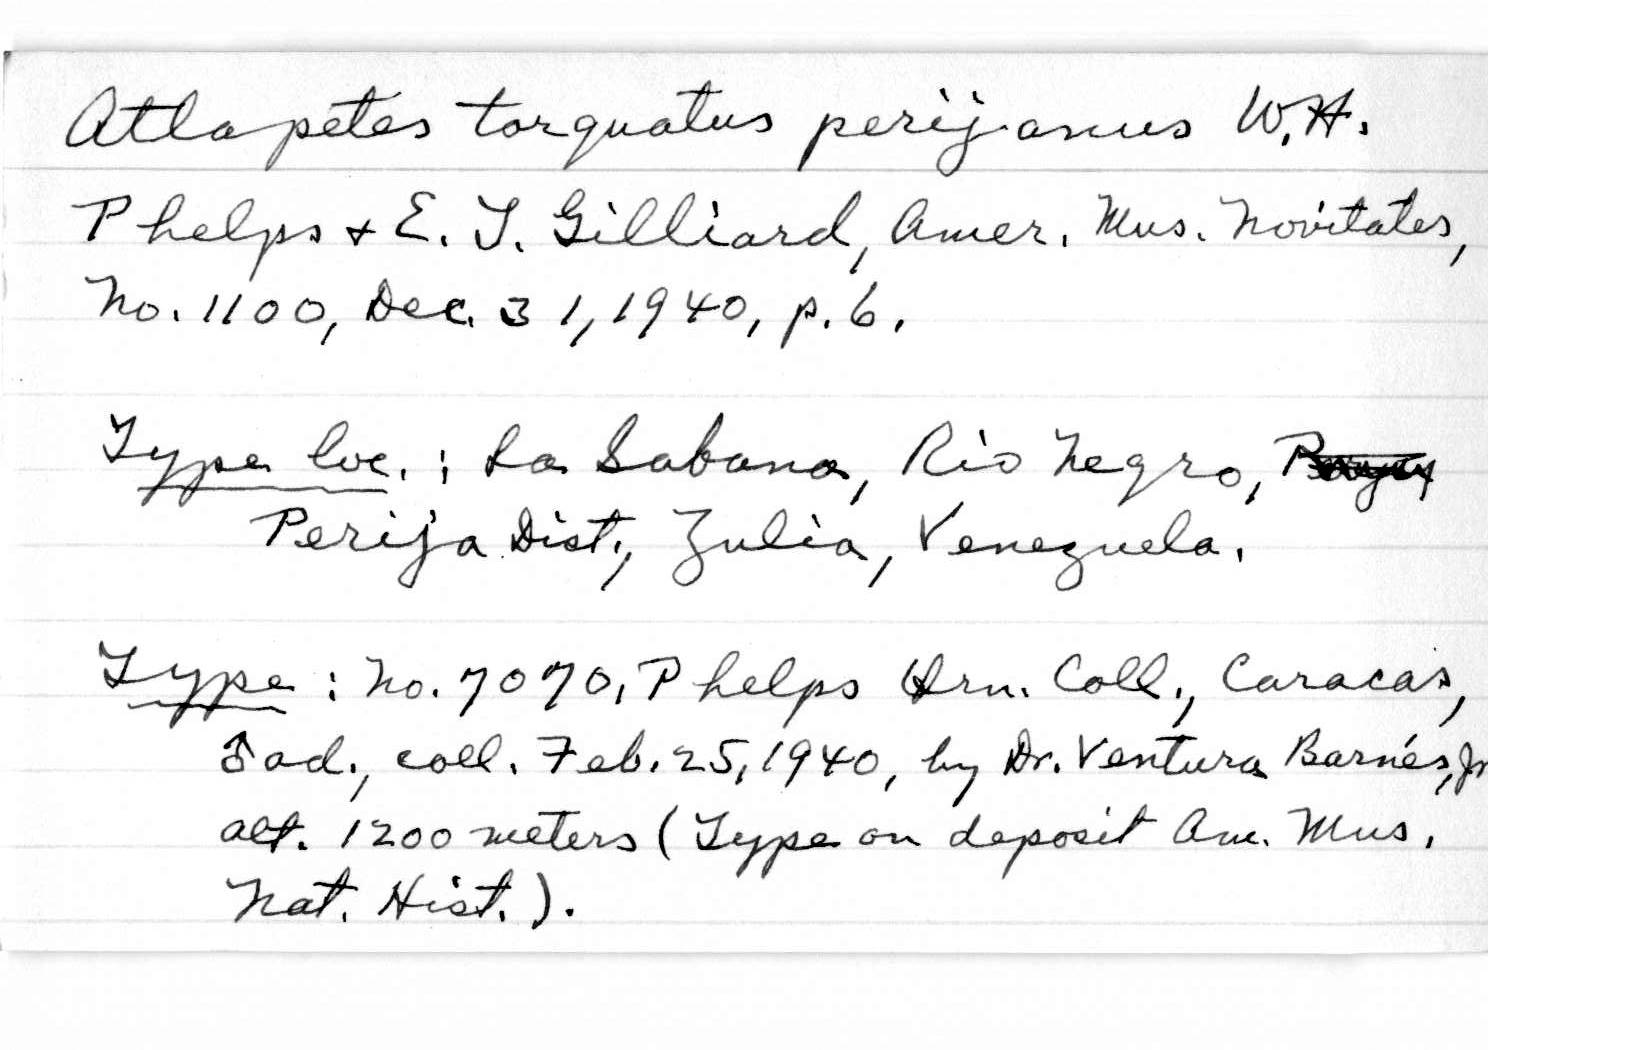 Atlapetes torquatus perijanus W.H.
Phelps + E. T. Gilliard, Amer. Mus. Novitates,
No. 1100, Dec. 31, 1940, p. 6.
Type loc.: La Sabana, Rio Negro,
Perija Dist., Zulia, Venezuela.
Type: No. 7070, Phelps Orn. Coll., Caracas,
♂ ad., coll. Feb. 25, 1940, by Dr. Ventura Barnés, Jr
alt. 1200 meters (Type on deposit Am. Mus.
Nat. Hist.).